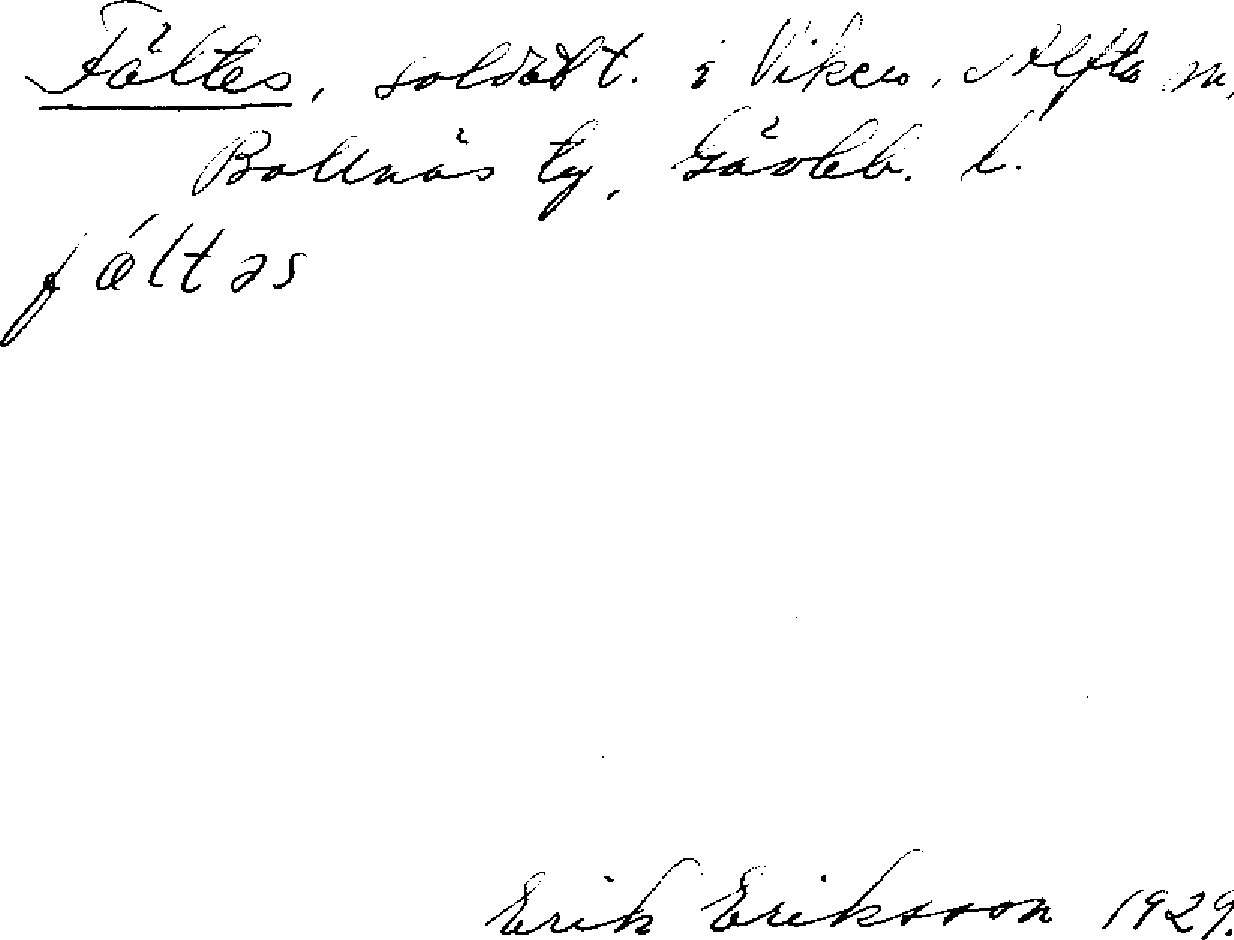 Fältes, soldatt. i Viken, Alfta sn,
Bollnäs tg, Gävleb. l.
fáltəs
Erik Eriksson 1929.